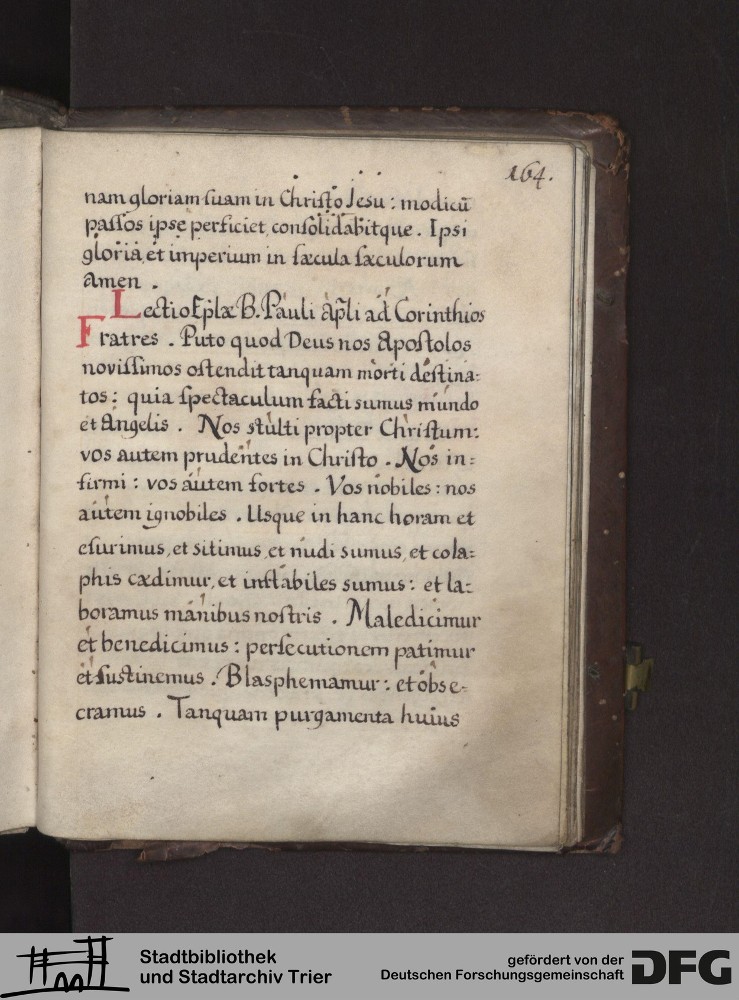 164.
nam gloriam suam in Christo Jesu : modicū
passos ipse perficiet, consolidabitque . Ipsi
gloria, et imperium in sæcula sæculorum
amen .
Lectio Eplæ B. Pauli apli ad Corinthios
Fratres . Puto quod Deus nos Apostolos
novissimos ostendit tanquam morti destina:
tos : quia spectaculum facti sumus mundo
et Angelis . Nos stulti propter Christum:
vos autem prudentes in Christo . Nos in:
firmi : vos autem fortes . Vos nobiles : nos
autem ignobiles . Usque in hanc horam et
esurimus, et sitimus, et nudi sumus, et cola:
phis cædimur, et instabiles sumus : et la:
boramus manibus nostris . Maledicimur
et benedicimus : persecutionem patimur
et sustinemus . Blasphemamur : et obse:
cramus . Tanquam purgamenta huius
Stadtbibliothek
und Stadtarchiv Trier
gefördert von der
Deutschen Forschungsgemeinschaft
DFG